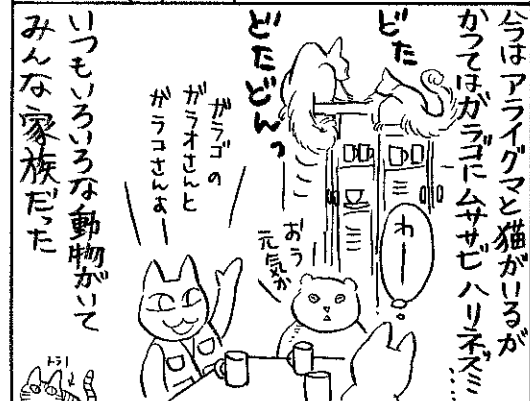 今はアライグマと猫がいるが
かつてはガラゴにムササビ ハリネズミ……
どた
どたどんっ
わー
おう
元気か
ガラゴの
ガラオさんと
ガラコさんよー
いつもいろいろな動物がいて
みんな家族だった
トラ！